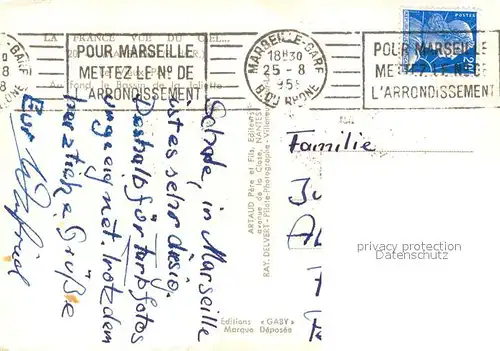 LA FRANCE VUE DU CIEL...
POUR MARSEILLE
METTEZ LE Nº DE
L'ARRONDISSEMENT
MARSEILLE-GARE
18H30
25-8
195
B. DU RHONE
POUR MARSEILLE
METTEZ LE Nº DE
L'ARRONDISSEMENT
Schade, in Marseille
ist es sehr diesig.
Deshalb für Farbfotos
ungeeignet. Trotzdem
herzliche Grüße
Euer Winfried
ARTAUD Père et Fils, Editeurs
avenue de la Close, NANTES
RAY. DELVERT - Pilote-Photographe - Villeneuve
Editions «GABY»
Marque Déposée
Familie
privacy protection
Datenschutz